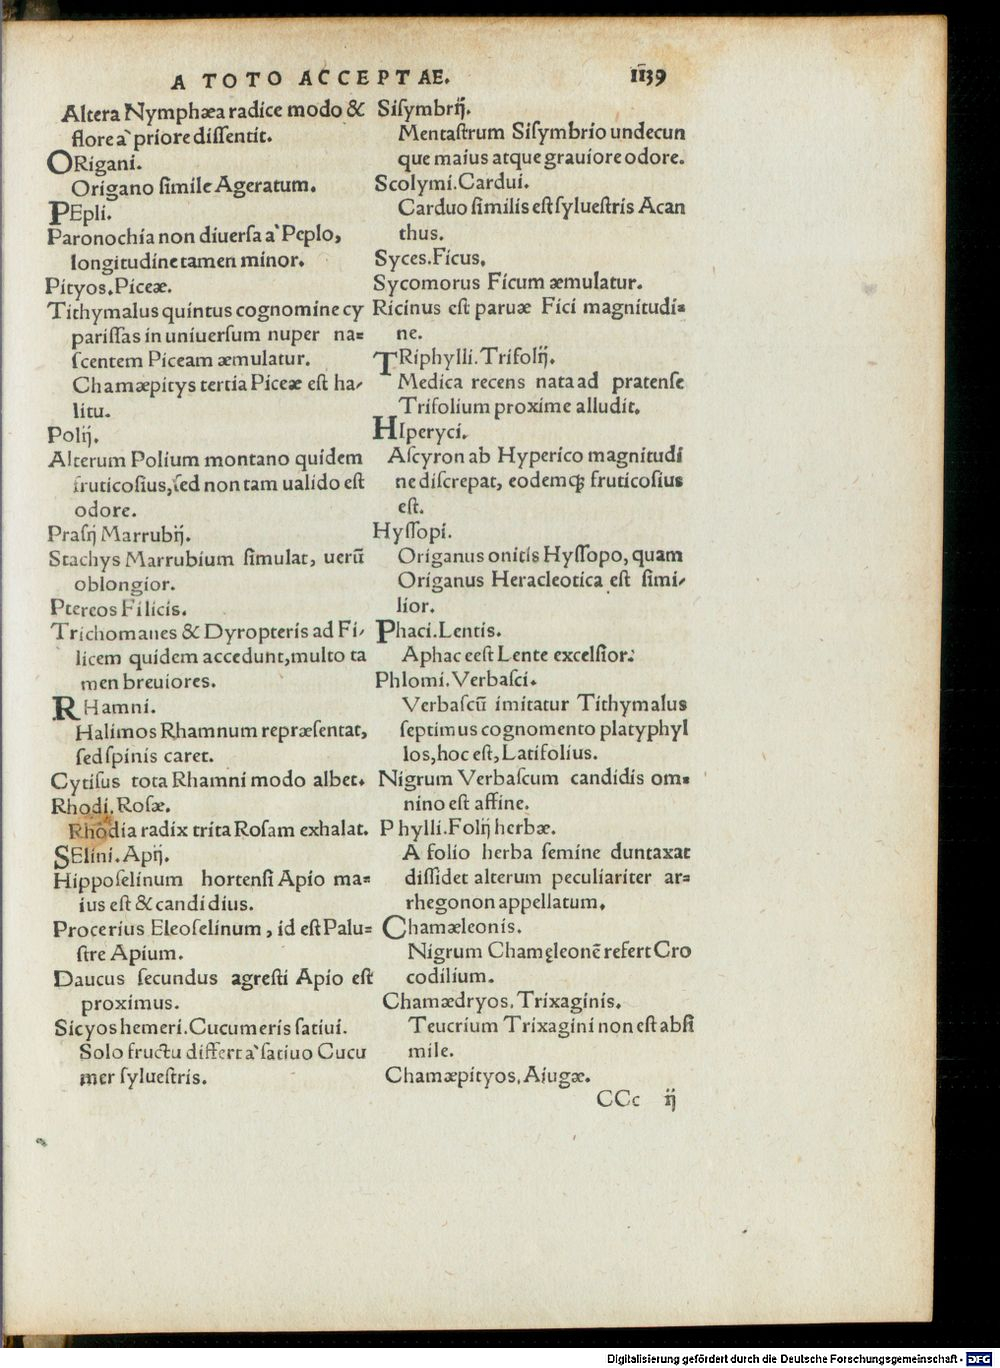 A TOTO ACCEPTAE. 1139
Altera Nymphæa radice modo &
flore a` priore dissentit.
ORigani.
Origano simile Ageratum.
PEpli.
Paronochia non diuersa a` Peplo,
longitudine tamen minor.
Pityos. Piceæ.
Tithymalus quintus cognomine cy
parissas in uniuersum nuper na=
scentem Piceam æmulatur.
Chamæpitys tertia Piceæ est ha/
litu.
Polij.
Alterum Polium montano quidem
fruticosius, sed non tam ualido est
odore.
Prasij Marrubij.
Stachys Marrubium simulat, uerũ
oblongior.
Ptereos Filicis.
Trichomanes & Dyropteris ad Fi/
licem quidem accedunt, multo ta
men breuiores.
RHamni.
Halimos Rhamnum repræsentat,
sed spinis caret.
Cytisus tota Rhamni modo albet.
Rhodi. Rosæ.
Rhodia radix trita Rosam exhalat.
SElini. Apij.
Hipposelinum hortensi Apio ma=
ius est & candidius.
Procerius Eleoselinum, id est Palu=
stre Apium.
Daucus secundus agresti Apio est
proximus.
Sicyos hemeri. Cucumeris satiui.
Solo fructu differt a` satiuo Cucu
mer syluestris.
Sisymbrij.
Mentastrum Sisymbrio undecun
que maius atque grauiore odore.
Scolymi. Cardui.
Carduo similis est syluestris Acan
thus.
Syces. Ficus.
Sycomorus Ficum æmulatur.
Ricinus est paruæ Fici magnitudi=
ne.
TRiphylli. Trifolij.
Medica recens nata ad pratense
Trifolium proxime alludit.
HIperyci.
Ascyron ab Hyperico magnitudi
ne discrepat, eodemq; fruticosius
est.
Hyssopi.
Origanus onitis Hyssopo, quam
Origanus Heracleotica est simi/
lior.
Phaci. Lentis.
Aphace est Lente excelsior.
Phlomi. Verbasci.
Verbascũ imitatur Tithymalus
septimus cognomento platyphyl
los, hoc est, Latifolius.
Nigrum Verbascum candidis om=
nino est affine.
Phylli. Folij herbæ.
A folio herba semine duntaxat
dissidet alterum peculiariter ar=
rhegonon appellatum.
Chamæleonis.
Nigrum Chamęleonē refert Cro
codilium.
Chamædryos. Trixaginis.
Teucrium Trixagini non est absi
mile.
Chamæpityos. Aiugæ.
CCc ij
Digitalisierung gefördert durch die Deutsche Forschungsgemeinschaft - DFG